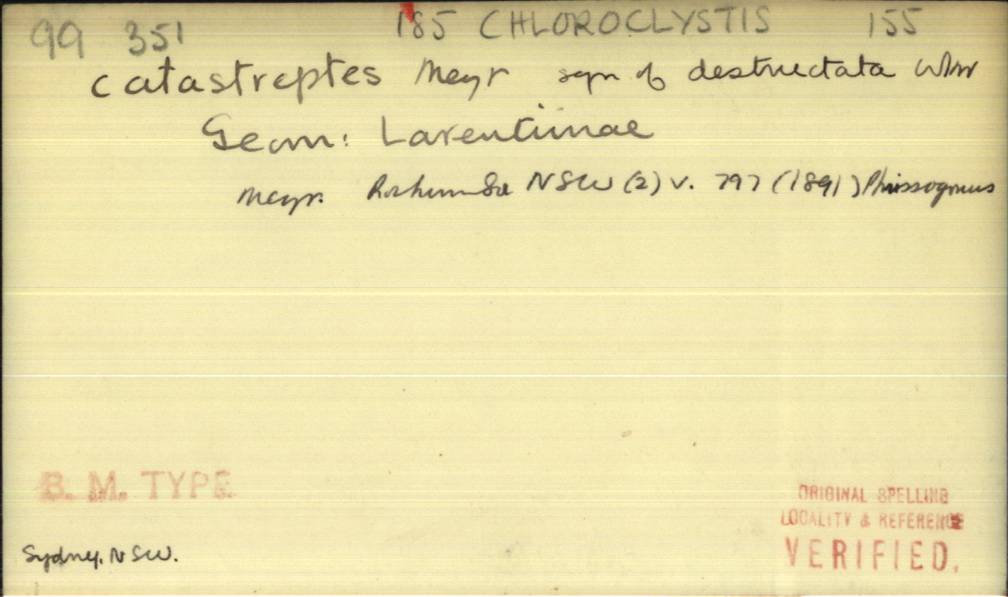 99 351 185 CHLOROCLYSTIS 155
catastreptes Meyr syn of destructata Wlk
Geom: Larentiinae
Meyr. NSW (2) v. 797 (1891) Phrissogonus
B. M. TYPE
ORIGINAL SPELLING
LOCALITY & REFERENCE
VERIFIED.
Sydney. NSW.